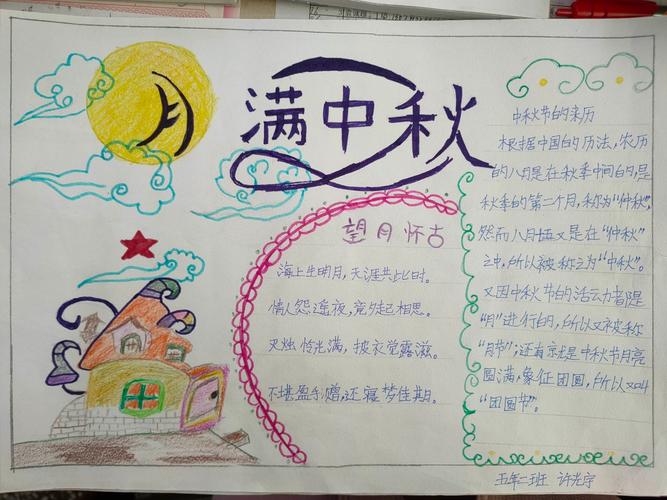 月满中秋
望月怀古
海上生明月,天涯共此时。
情人怨遥夜,竟夕起相思。
灭烛怜光满,披衣觉露滋。
不堪盈手赠,还寝梦佳期。
中秋节的来历
根据中国的历法,农历
的八月是在秋季中间的,是
秋季的第二个月,称为"仲秋",
然而八月十五又是在"仲秋"
之中,所以被称之为"中秋"。
又因中秋节的活动者都是
"月"进行的,所以又被称
"月节";还有就是中秋节月亮
圆满,象征团圆,所以又叫
"团圆节"。
五年二班 许光宇